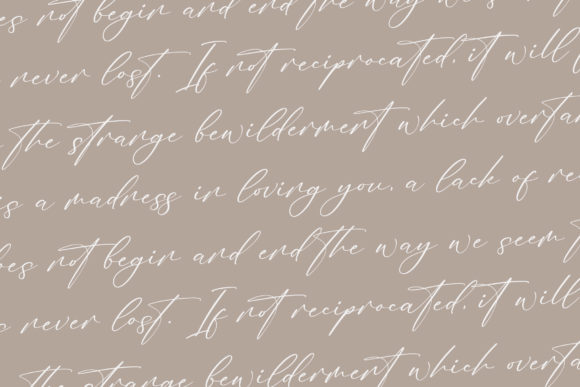 not begin and end the way we
never lost. If not reciprocated, it will
the strange bewilderment which overta
is a madness in loving you, a lack of re
oes not begin and end the way we seem
never lost. If not reciprocated, it will
the strange bewilderment which overta